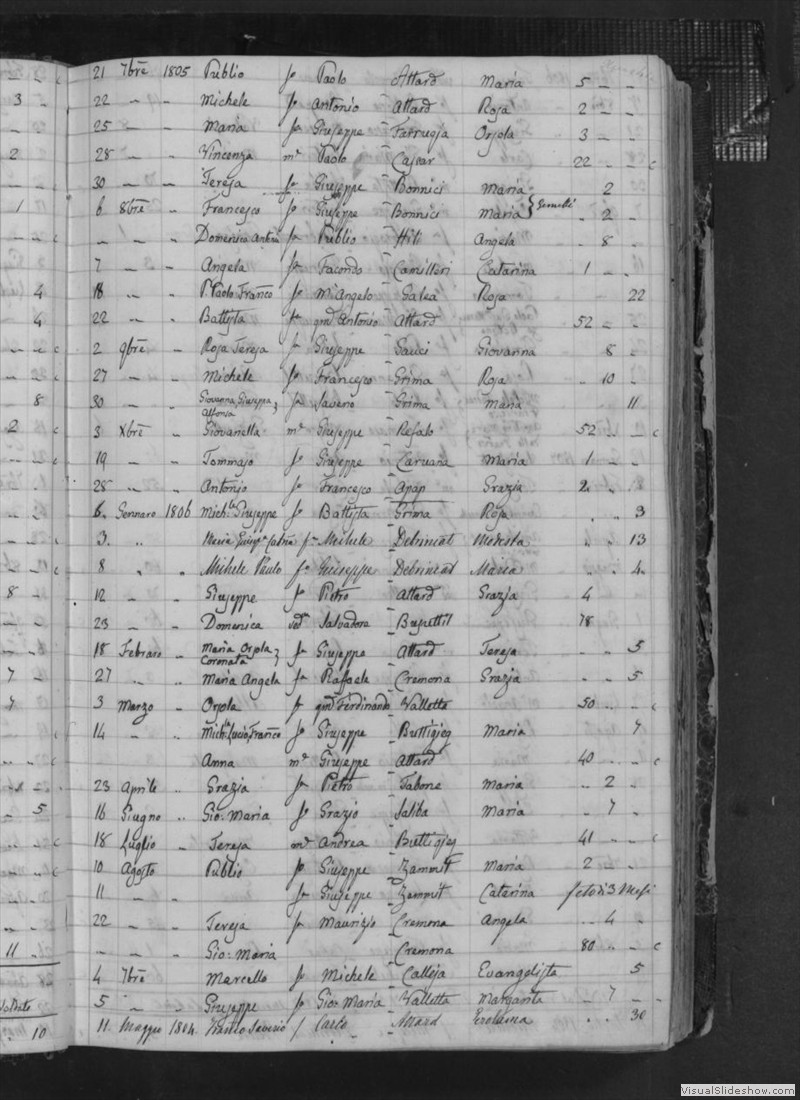 21 7bre 1805 Publio fo Paolo Attard Maria 5 " "
3 22 " " Michele fo Antonio Attard Rosa 2 " "
25 " " Maria fa Giuseppe Farrugia Orsola 3 " "
2 28 " " Vincenza me Paolo Cajar 22 " " c
30 " " Teresa fa Giuseppe Bonnici Maria " 2
1 6 8bre " Francesco fo Giuseppe Bonnici Maria } Gemelli " 2 "
c " " " Domenico Antonio fo Publio Hili Angela " 8 "
7 " " Angela fa Facondo Camilleri Catarina 1 " "
4 18 " " P. Paolo Franco fo M. Angelo Galea Rosa 22
4 22 " " Battista fo qm Antonio Attard 52 " "
c 2 9bre " Rosa Teresa fa Giuseppe Sauci Giovanna 8 "
c 27 " " Michele fo Francesco Grima Rosa " 10 "
8 30 " " Giovanna Giuseppa Alfonsa } fa Saverio Grima Maria " 11
2 c 3 Xbre " Giovanella me Giuseppe Refalo 52 " " c
c 19 " " Tommaso fo Giuseppe Caruana Maria 1 " "
28 " " Antonio fo Francesco Apap Grazia 2 "
6 Gennaro 1806 Michle Giuseppe fo Battista Grima Rosa " " 3
c 3 " Maria fa Michele Debrincat Modesta " " 13
c 8 " " Michele Paulo fo Giuseppe Debrincat Maria " " 4
8 12 " " Giuseppe fo Pietro Attard Grazia 4
23 " " Domenica ved Salvadore Busuttil 78
18 Febraro " Maria Orsola Coronata } fa Giuseppe Attard Teresa " " 5
7 27 " " Maria Angela fa Raffaele Cremona Grazia " " 5
7 3 Marzo " Orsola fa qm Ferdinando Vallette 50 " " c
c 14 " " Mich. Lucio Franco fo Giuseppe Buttigieg Maria 7
c Anna me Giuseppe Attard 40 " " c
23 Aprile " Grazia fa Pietro Tabone Maria " 2 "
5 16 Giugno " Gio. Maria fo Grazio Saliba Maria " 7 "
c 18 Luglio " Teresa me Andrea Buttigieg 41 " " c
10 Agosto " Publio fo Giuseppe Zammit Maria 2 " "
11 " fo Giuseppe Zammit Caterina feto di 3 Mesi
22 " " Teresa fa Maurizio Cremona Angela " 4 "
11 " " " Gio. Maria Cremona 80 " " c
4 7bre " Marcello fo Michele Calleja Evangelista 5
5 " " Giuseppe fo Gio. Maria Vallette Margarita " 7 "
10 11 Maggio 1804. Saverio f Carlo Attard " " 30
VisualSlideshow.com